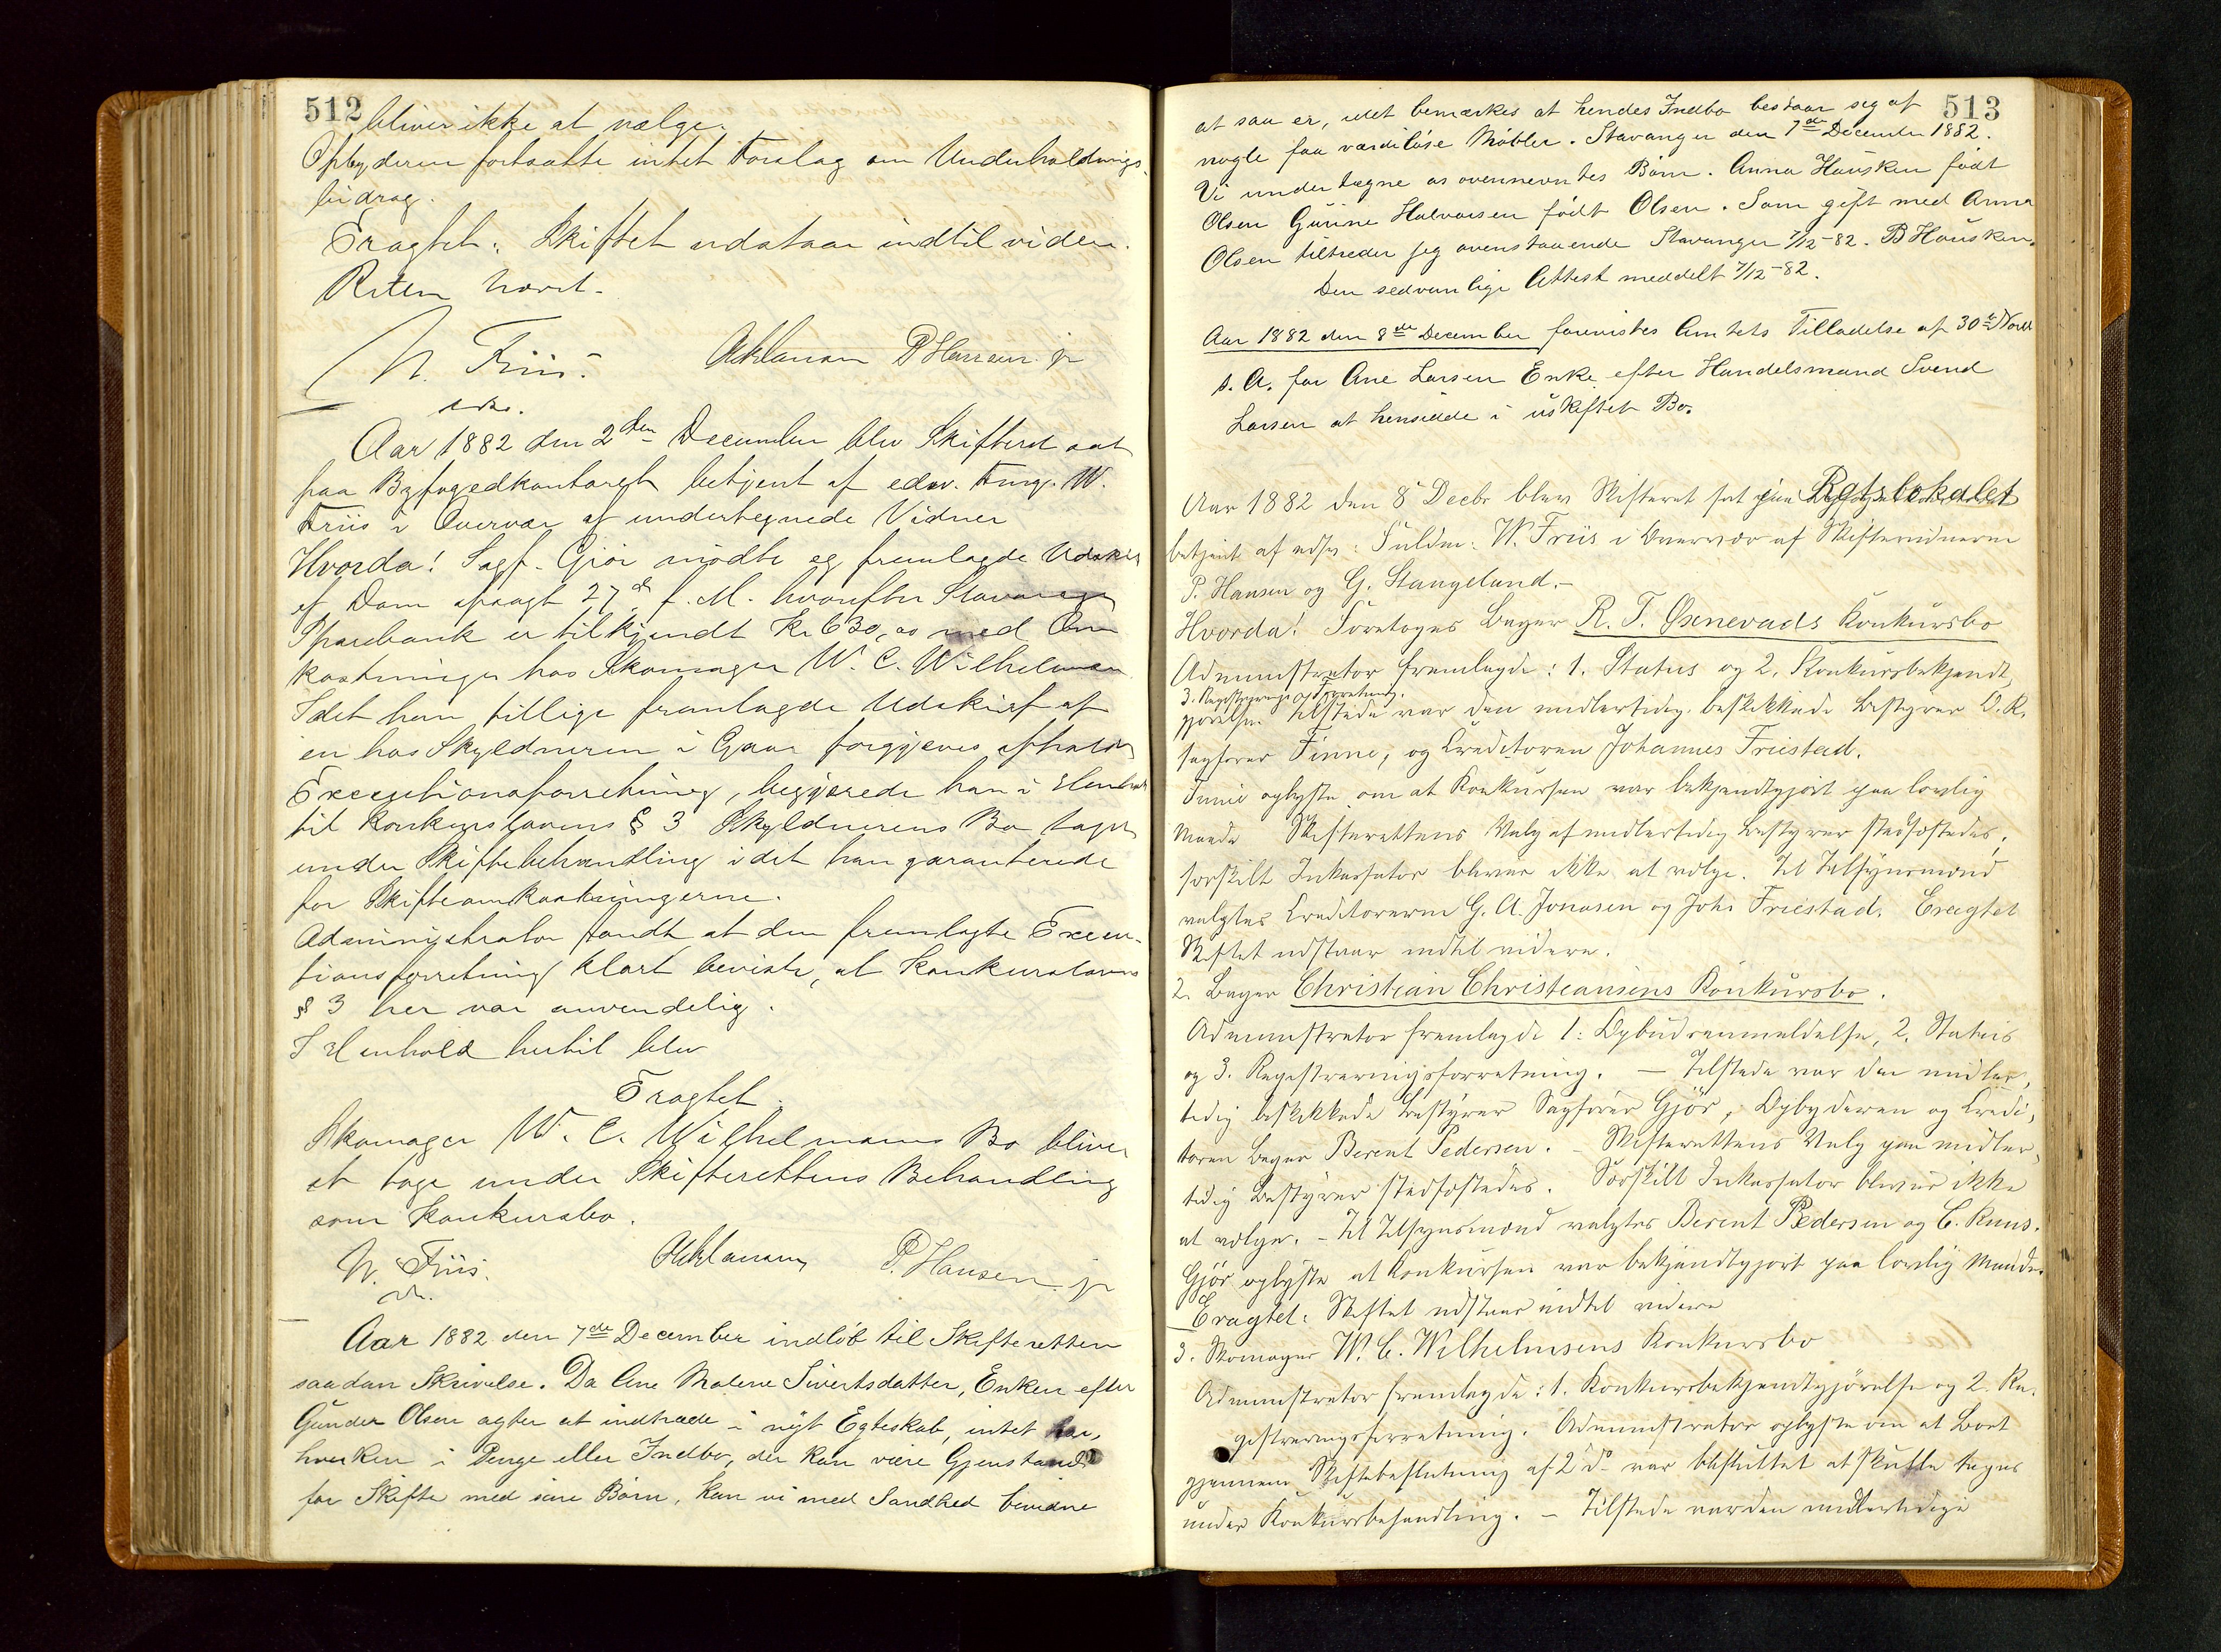 512
bliver ikke at vælge.
Opbyderen fortsatte intet Forslag om Underholdnings-
bidrag.
Eragtet: Skiftet udstaar indtil videre.
Retten hævet.
W. Friis.
P Hansen jr
Aar 1882 den 2den December blev Skifteret sat
paa Byfogedkontoret betjent af edsv. Fuldm. W.
Friis i Overvær af undertegnede Vidner
Hvorda! Sagf. Gjør mødte og fremlagde Udskrift
af Dom afsagt 27de f. M. hvorefter Stavanger
Sparebank er tilkjendt Kr 630,00 med Om
kostninger hos Skomager W. C. Wilhelmsen
Idet han tillige fremlagde Udskrift af
en hos Skyldneren i Gaar forgjæves afholdt
Executionsforretning, begjærede han i Henhold
til Konkurslovens § 3 Skyldnerens Bo taget
under Skiftebehandling idet han garanterede
for Skifteomkostningerne.
Administrator fandt at den fremlagte Execu-
tionsforretning klart beviste, at Konkurslovens
§ 3 her var anvendelig.
I Henhold hertil blev
Eragtet.
Skomager W. C. Wilhelmsens Bo bliver
at tage under Skifterettens Behandling
som Konkursbo.
W. Friis.
P. Hansen jr
Aar 1882 den 7de December indløb til Skifteretten
saadan Skrivelse. Da Ane Malene Sivertsdatter, Enken efter
Gunder Olsen agter at indtræde i nyt Egteskab, intet har,
hverken i Penge eller Indbo, der kan være Gjenstand
for Skifte med sine Børn, kan vi med Sandhed bevidne
513
at saa er, idet bemærkes at hendes Indbo bestaar seg af
nogle faa værdiløse Møbler. Stavanger den 7de December 1882.
Vi undertegne os ovennevntes Børn. Anna Hausken født
Olsen Gurine Halvorsen født Olsen. Som gift med Anna
Olsen tiltreder jeg ovenstaaende Stavanger 7/12-82. B Hausken.
Den sedvanlige Attest meddelt 7/12-82.
Aar 1882 den 8de December forevistes Amtets Tilladelse af 30te Novbr
d. A. for Ane Larsen Enke efter Handelsmand Svend
Larsen at hensidde i uskiftet Bo.
Aar 1882 den 8 Decbr blev Skifteret sat paa Retslokalet
betjent af edsv: Fuldm: W. Friis i Overvær af Skiftevidnerne
P. Hansen og G. Stangeland.-
Hvorda! Foretoges Bager R. T. Øxnevads Konkursbo
Administrator fremlagde: 1. Status og 2. Konkursbekjendt,
3. Registreringsforretning.
gjørelse. Tilstede var den midlertidig beskikkede Bestyrer O.R.
sagfører Finne, og Creditoren Johannes Friestad.
Finne oplyste om at Konkursen var bekjendtgjort paa lovlig
Maade Skifterettens Valg af midlertidig Bestyrer stadfæstedes,
særskilt Inkassator bliver ikke at vælge. Til Tilsynsmænd
valgtes Creditorerne G. A. Jonasen og Johs Friestad. Eragtet
Skiftet udstaar indtil videre.
2. Bager Christian Christiansens Konkursbo.
Administrator fremlagde 1: Opbudsanmeldelse, 2. Status
og 3. Registreringsforretning. - Tilstede var den midler,
tidig beskikkede Bestyrer Sagfører Gjør, Opbyderen og Credi,
toren Bager Berent Pedersen. - Skifterettens Valg paa midler,
tidig Bestyrer stadfæstedes. Særskilt Inkassator bliver ikke
at vælge. - Til Tilsynsmænd valgtes Berent Pedersen og C. Runs.
Gjør oplyste at Konkursen var bekjendtgjort paa lovlig Maade.
Eragtet: Skiftet udstaar indtil videre
3. Skomager W. C. Wilhelmsens Konkursbo
Administrator fremlagde: 1. Konkursbekjendtgjørelse og 2. Re,
gistreringsforretning. Administrator oplyste om at Boet
gjennem Skiftebeslutning af 2 ds var besluttet at skulle tages
under Konkursbehandling. - Tilstede var den midlertidige